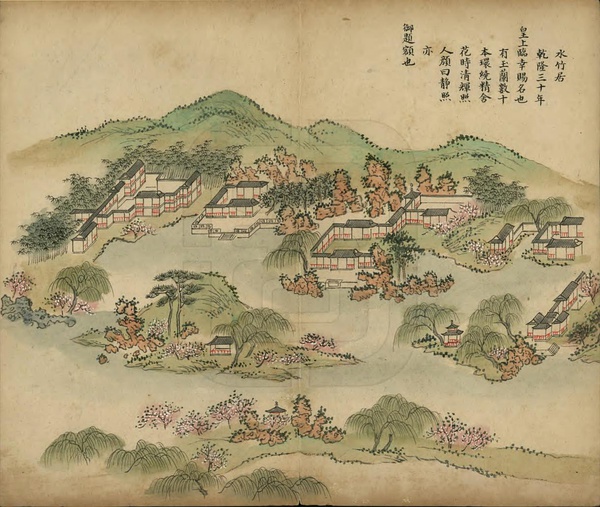 水竹居
乾隆三十年
皇上臨幸賜名也
有玉蘭數十
本環繞精舍
花時清輝照
人顏曰靜照
亦
御題額也